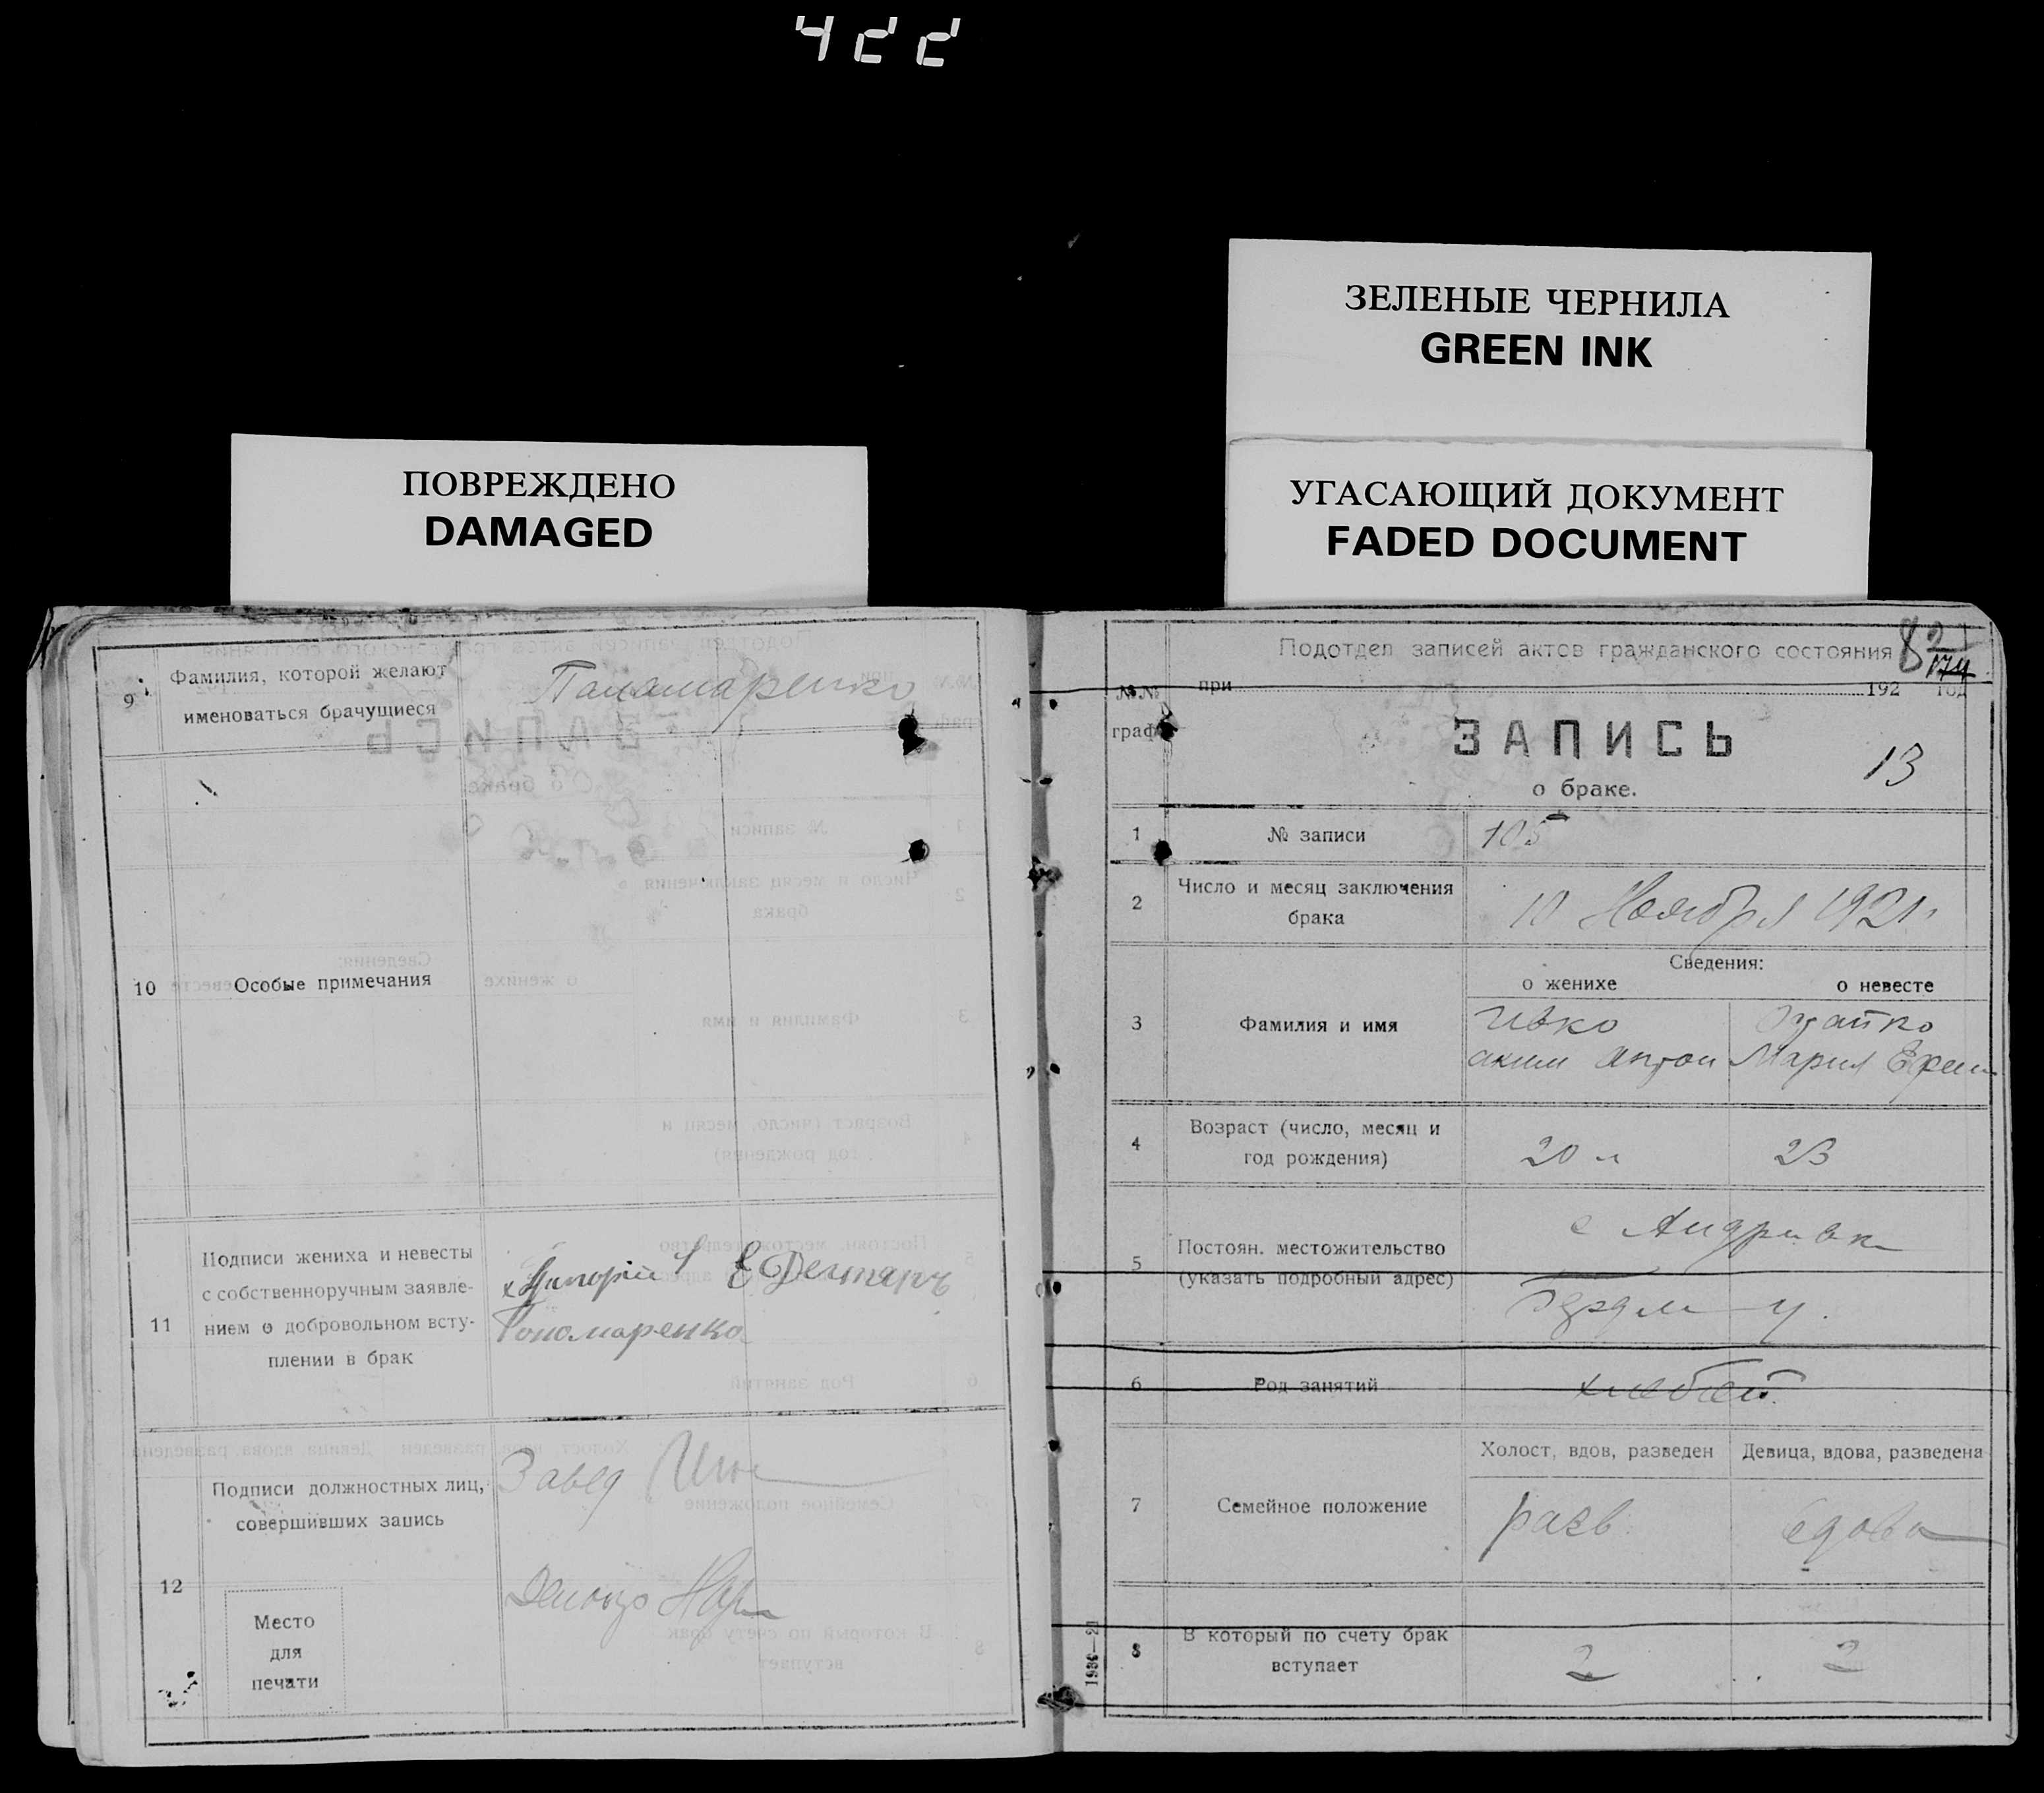 422
ЗЕЛЕНЫЕ ЧЕРНИЛА
GREEN INK
ПОВРЕЖДЕНО
DAMAGED
УГАСАЮЩИЙ ДОКУМЕНТ
FADED DOCUMENT
9
Фамилия, которой желают
именоваться брачущиеся
Панамаренко
10
Особые примечания
11
Подписи жениха и невесты
с собственноручным заявле-
нием о добровольном всту-
плении в брак
Е Дегтярь
Пономаренко
12
Подписи должностных лиц,
совершивших запись
Завед
Место
для
печати
Подотдел записей актов гражданского состояния
82
174
№№
граф
при 192 год
ЗАПИСЬ
о браке.
13
1
№ записи
105
2
Число и месяц заключения
брака
10 Ноября 1921 г
Сведения:
о женихе
о невесте
3
Фамилия и имя
Ивко
аким Антон
Мария Ефим
4
Возраст (число, месяц и
год рождения)
20 л
23
5
Постоян. местожительство
(указать подробный адрес)
с Андривк
6
Род занятий
хлебоп
7
Семейное положение
Холост, вдов, разведен
Девица, вдова, разведена
разв
вдова
8
В который по счету брак
вступает
2
2